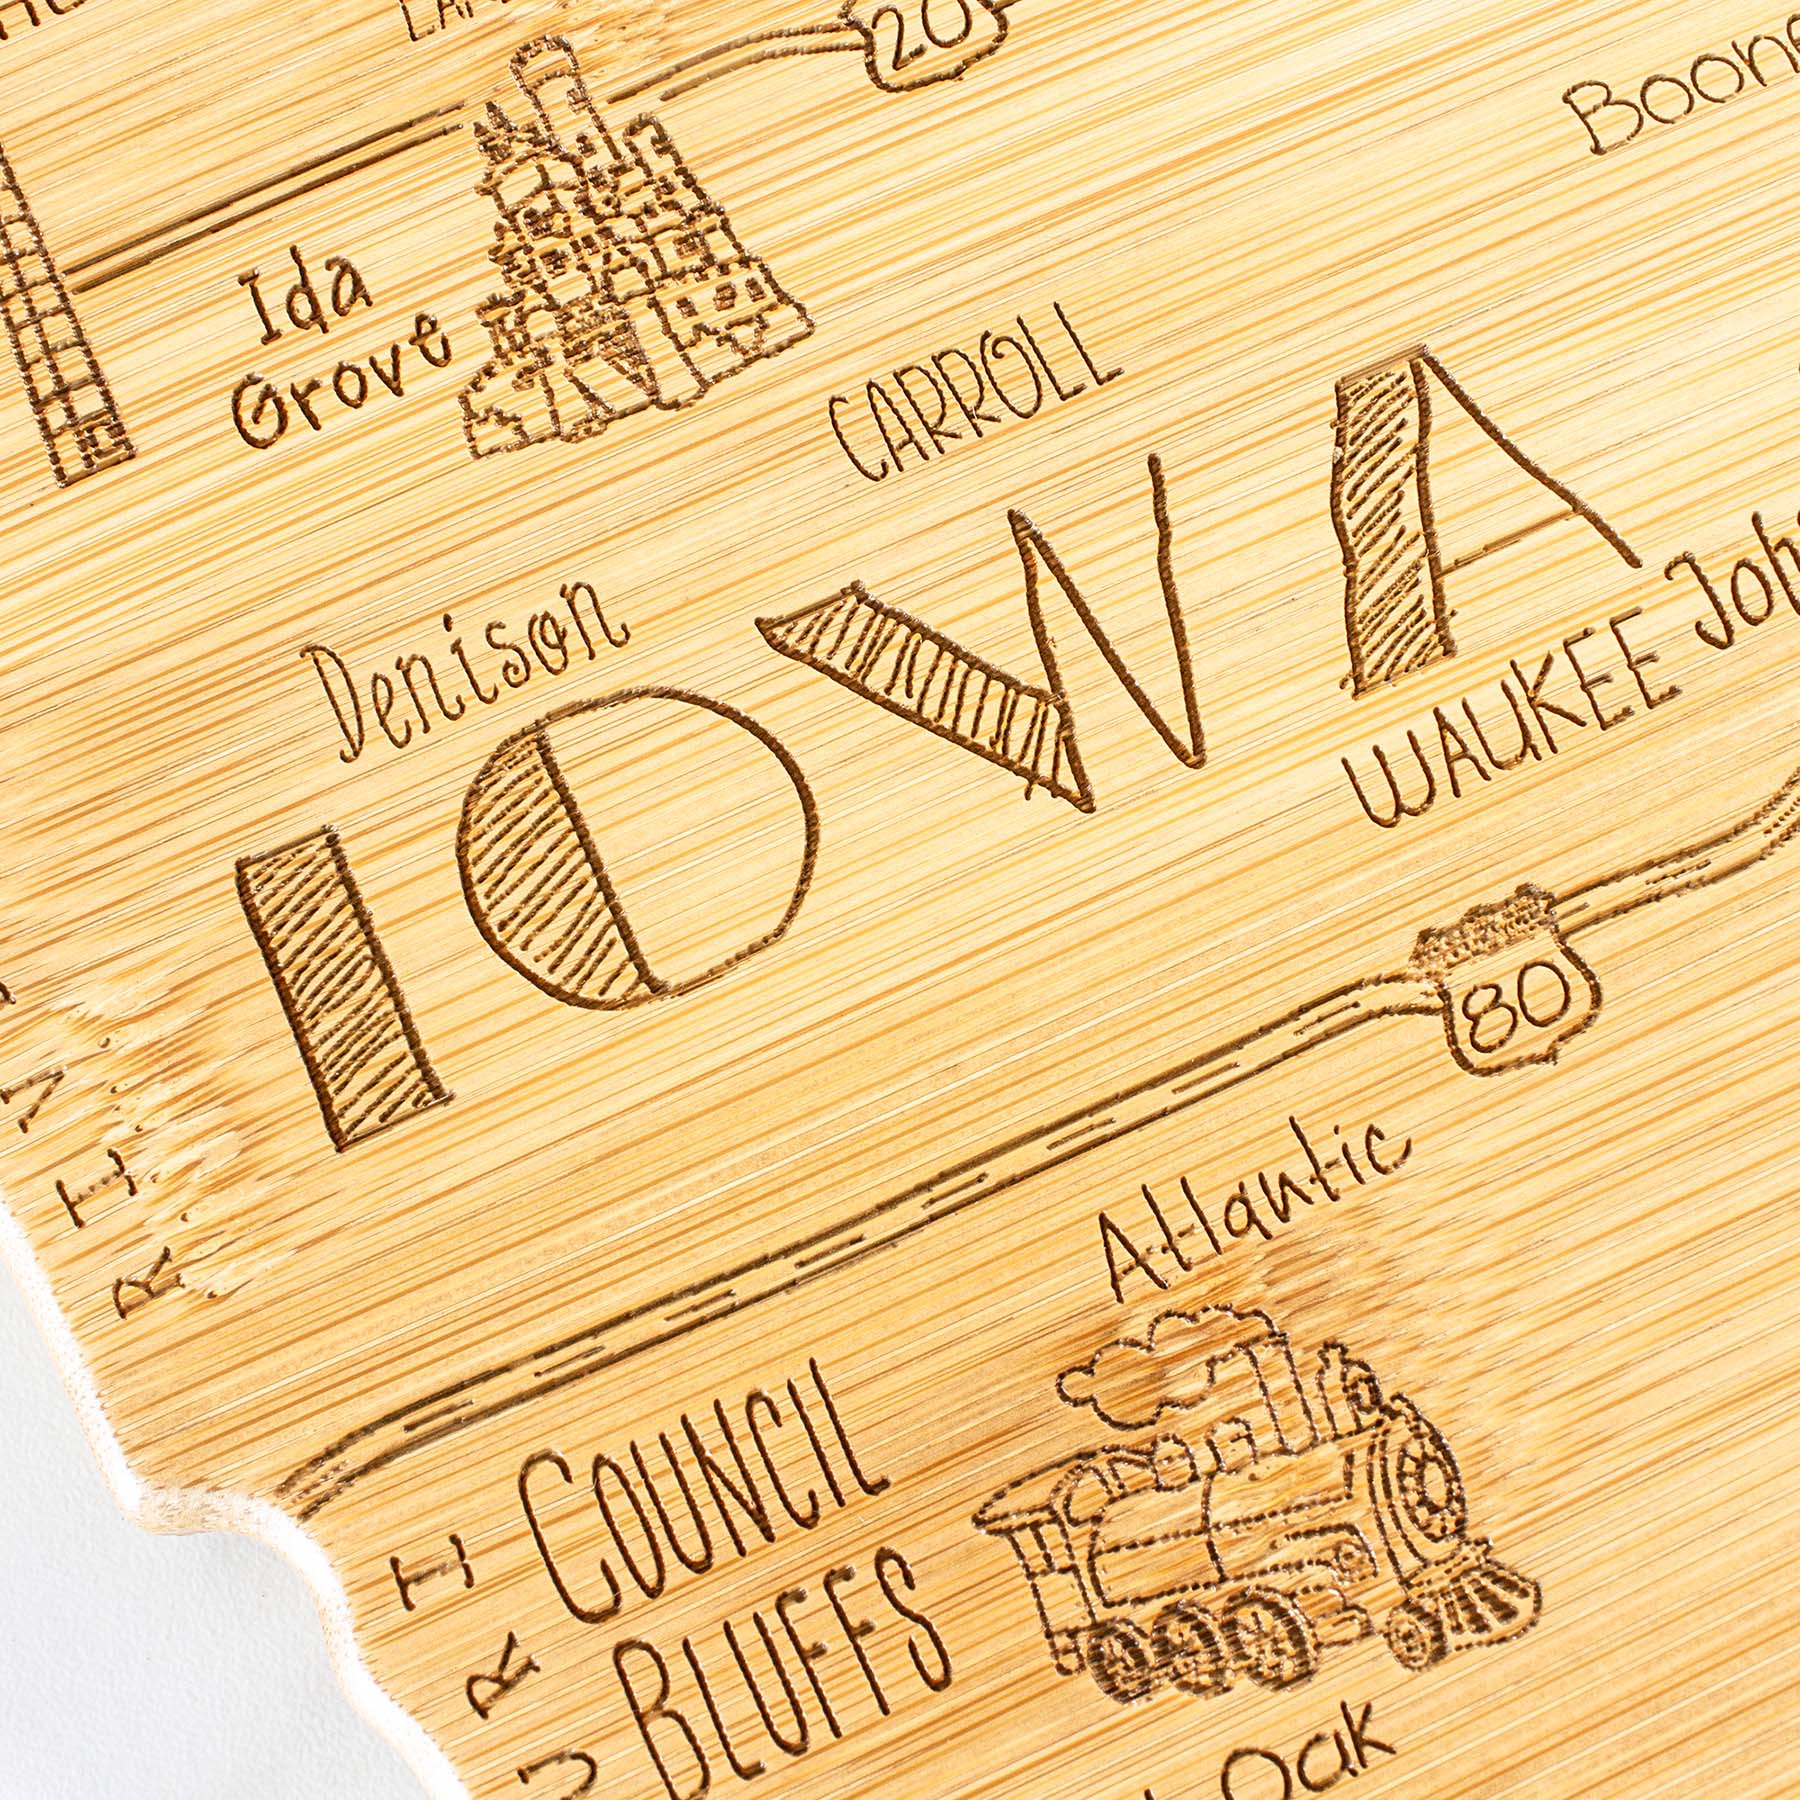 20
Boone
Ida
Grove
CARROLL
Denison
IOWA
WAUKEE
80
Atlantic
COUNCIL
BLUFFS
Oak